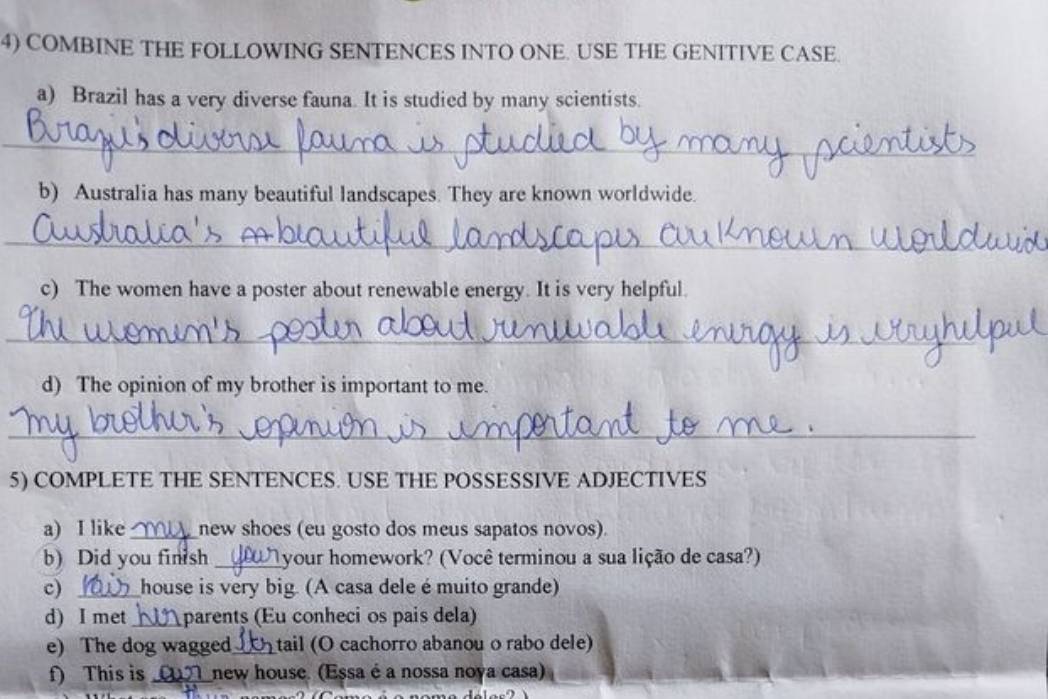 4) COMBINE THE FOLLOWING SENTENCES INTO ONE. USE THE GENITIVE CASE.
a) Brazil has a very diverse fauna. It is studied by many scientists.
Brazil's diverse fauna is studied by many scientists
b) Australia has many beautiful landscapes. They are known worldwide.
Australia's beautiful landscapes are known worldwide
c) The women have a poster about renewable energy. It is very helpful.
The women's poster about renewable energy is very helpul
d) The opinion of my brother is important to me.
My brother's opinion is important to me.
5) COMPLETE THE SENTENCES. USE THE POSSESSIVE ADJECTIVES
a) I like my new shoes (eu gosto dos meus sapatos novos).
b) Did you finish your your homework? (Você terminou a sua lição de casa?)
c) house is very big. (A casa dele é muito grande)
d) I met her parents (Eu conheci os pais dela)
e) The dog wagged its tail (O cachorro abanou o rabo dele)
f) This is our new house. (Essa é a nossa nova casa)
names? (Como é o nome deles?)